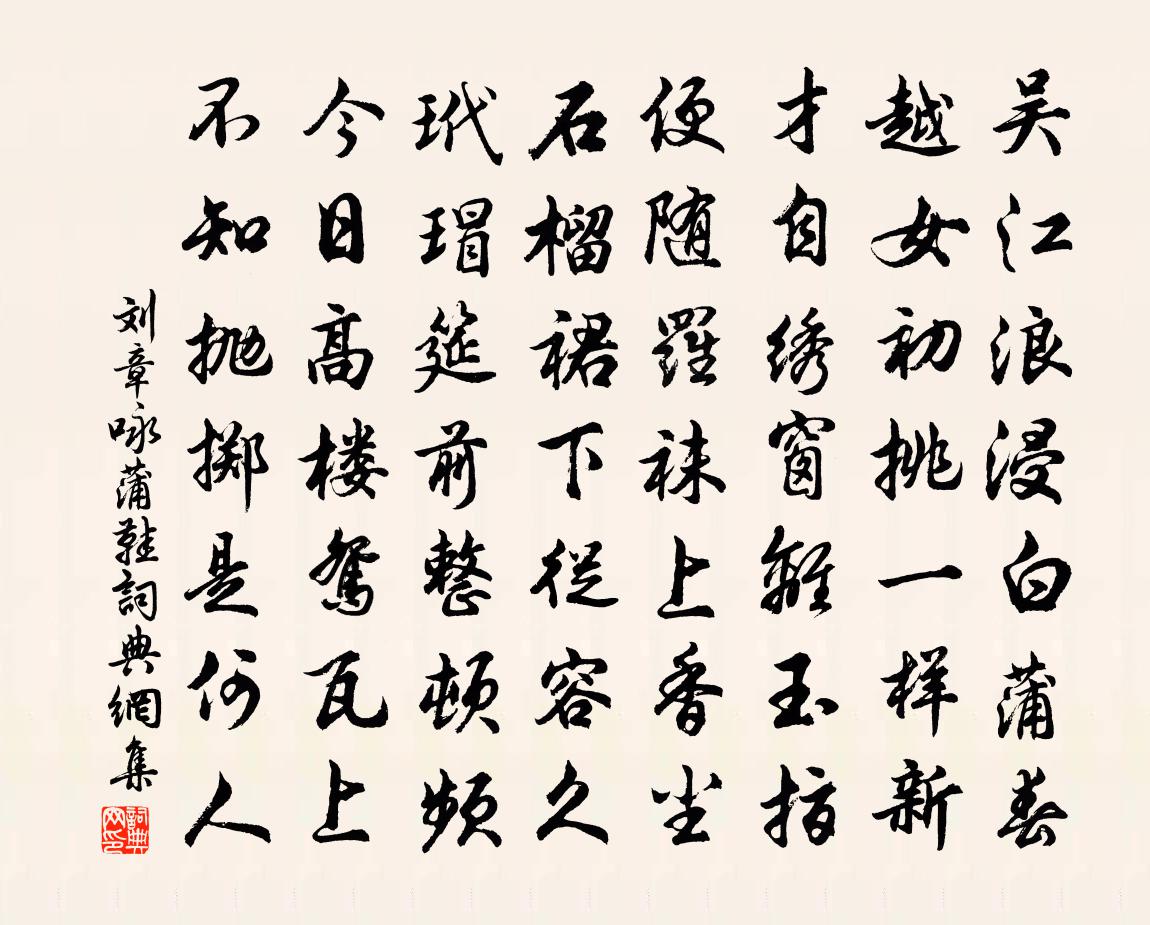 吴江浪浸白蒲春
越女初挑一样新
才自绣窗離玉指
便随羅袜上香尘
石榴裙下從容久
玳瑁筵前整顿频
今日高楼鴛瓦上
不知抛掷是何人
刘章咏蒲鞋詞典網集
詞典网印